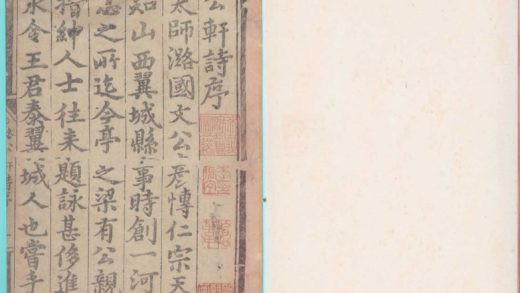 公軒詩序
太師潞國文公彥愽仁宗天
知山西翼城縣事時創一河
之所迄今亭之梁有公親
搢紳人士往来題詠甚侈進
令王君泰翼城人也嘗手